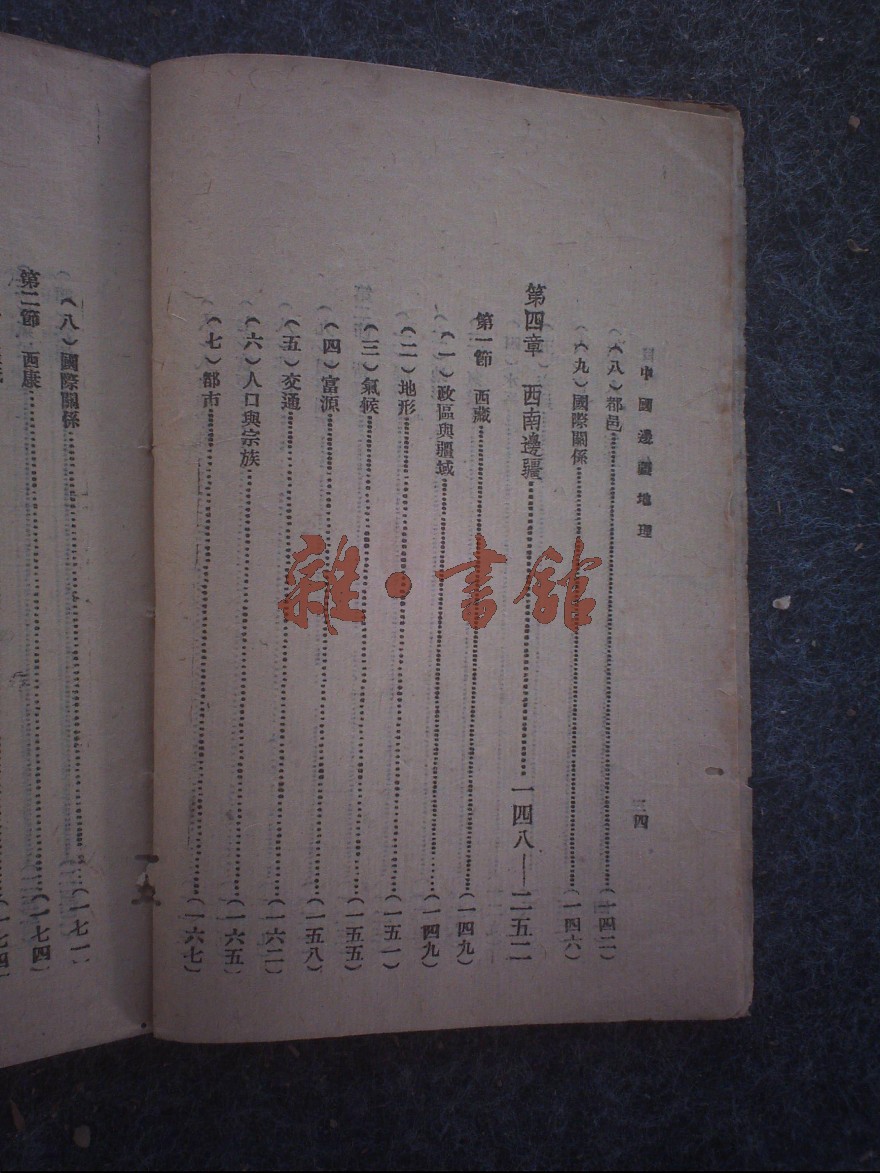 中國邊疆地理
三四
（八）都邑（一四二）
（九）國際關係（一四六）
第四章 西南邊疆 一四八——二五二
第一節 西藏（一四九）
（一）政區與疆域（一四九）
（二）地形（一五一）
（三）氣候（一五五）
（四）富源（一五八）
（五）交通（一六二）
（六）人口與宗族（一六五）
（七）都市（一六七）
（八）國際關係（一七一）
第二節 西康（一七四）
（一七四）
雜·書館